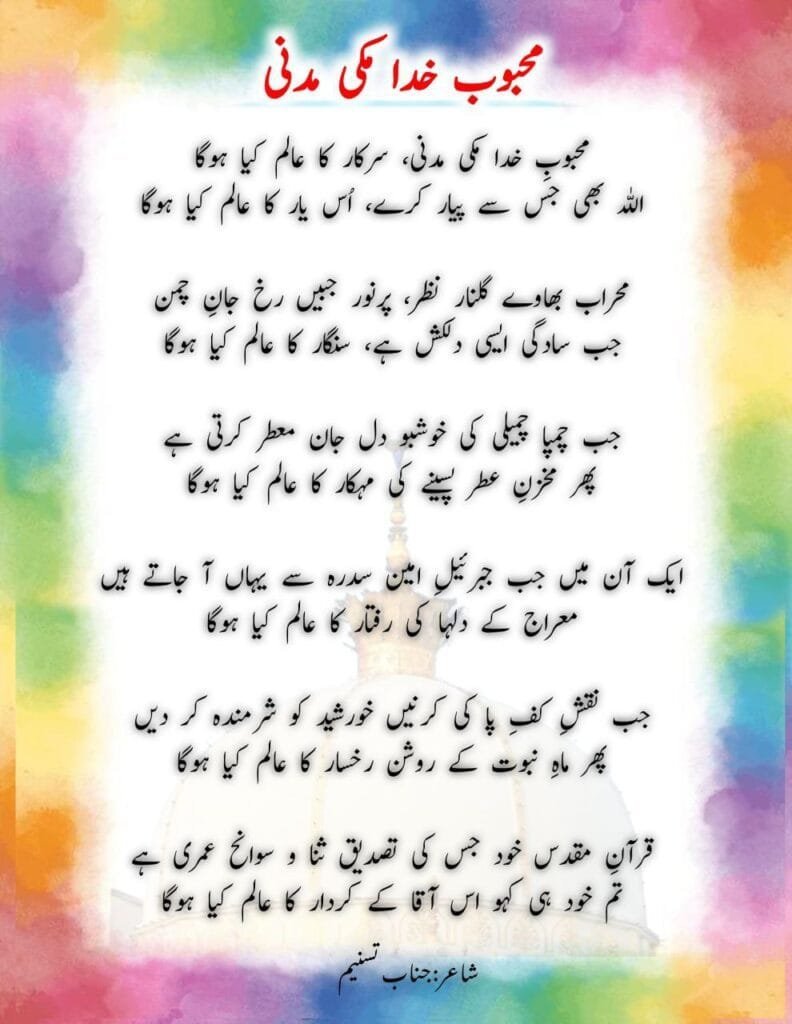 محبوب خدا مکی مدنی
محبوبِ خدا مکی مدنی، سرکار کا عالم کیا ہوگا
اللہ بھی جس سے پیار کرے، اُس یار کا عالم کیا ہوگا
محراب بھاوے گلنار نظر، پرنور جبیں رخ جانِ چمن
جب سادگی ایسی دلکش ہے، سنگار کا عالم کیا ہوگا
جب چمپا چمیلی کی خوشبو دل جان معطر کرتی ہے
پھر مخزنِ عطر پسینے کی مہکار کا عالم کیا ہوگا
ایک آن میں جب جبرئیلِ امین سدرہ سے یہاں آ جاتے ہیں
معراج کے دلہا کی رفتار کا عالم کیا ہوگا
جب نقشِ کفِ پا کی کرنیں خورشید کو شرمندہ کر دیں
پھر ماہِ نبوت کے روشن رخسار کا عالم کیا ہوگا
قرآنِ مقدس خود جس کی تصدیق ثنا و سوانح عمری ہے
تم خود ہی کہو اس آقا کے کردار کا عالم کیا ہوگا
شاعر:جناب تسنیم